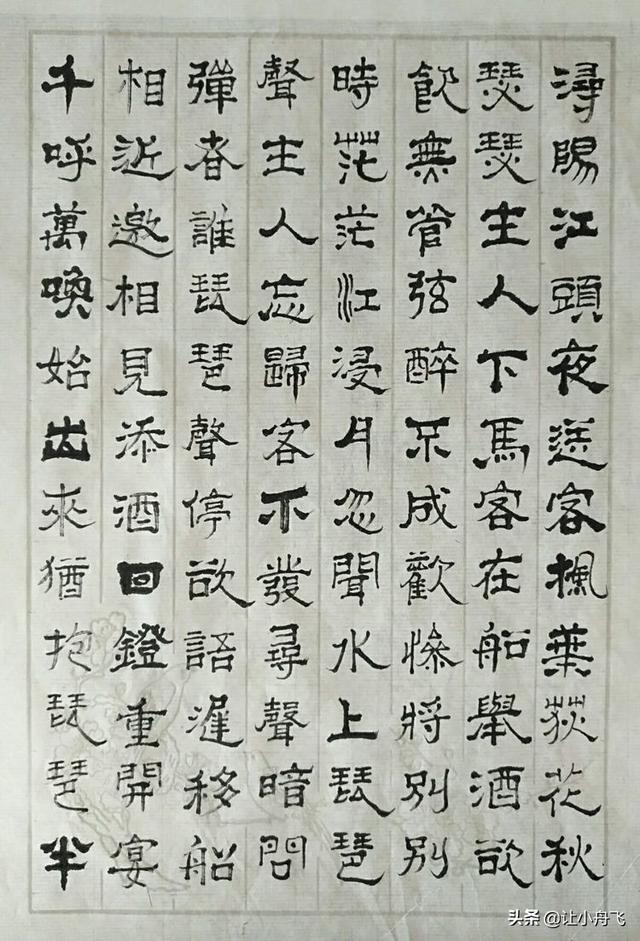 潯陽江頭夜送客楓葉荻花秋
瑟瑟主人下馬客在船舉酒欲
飲無管弦醉不成歡慘將別別
時茫茫江浸月忽聞水上琵琶
聲主人忘歸客不發尋聲暗問
彈者誰琵琶聲停欲語遲移船
相近邀相見添酒回鐙重開宴
千呼萬喚始出來猶抱琵琶半
头条 @让小舟飞